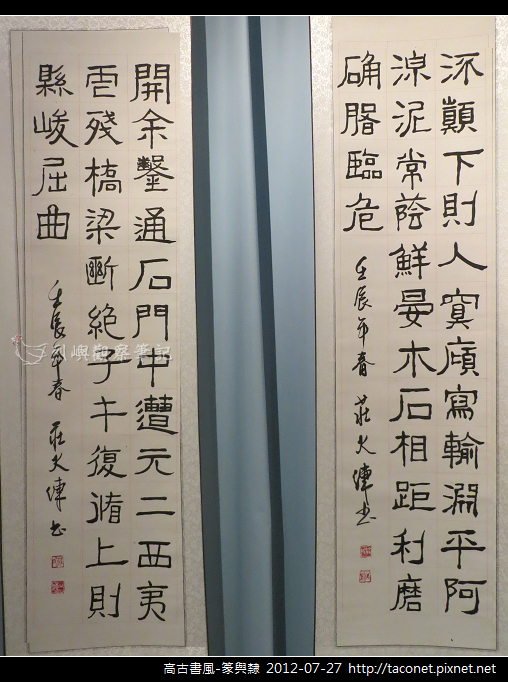 流顛下則入冥廎寫輸淵平阿
湶泥常蔭鮮晏木石相距利磨
确臨危
壬辰年春 莊大偉書
開余鑿通石門中遭元二西夷
虐殘橋梁斷絕子午復循上則
縣峻屈曲
壬辰年春 莊大偉書
刣嶼觀察筆記
高古書風-篆與隸 2012-07-27 http://taconet.pixnet.net